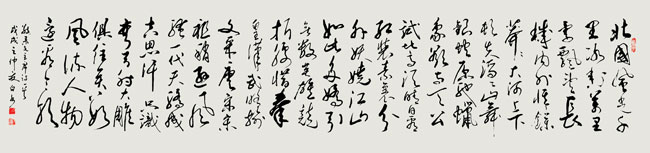 北國風光千
里冰封萬里
雪飄望長
城內外惟餘
莽莽大河上下
頓失滔滔山舞
銀蛇原馳蠟
象欲與天公
試比高須晴日看
紅裝素裹分
外妖嬈江山
如此多嬌引
無數英雄競
折腰惜秦
皇漢武略輸
文采唐宗宋
祖稍遜風
騷一代天驕成
吉思汗只識
彎弓射大雕
俱往矣數
風流人物
還看今朝